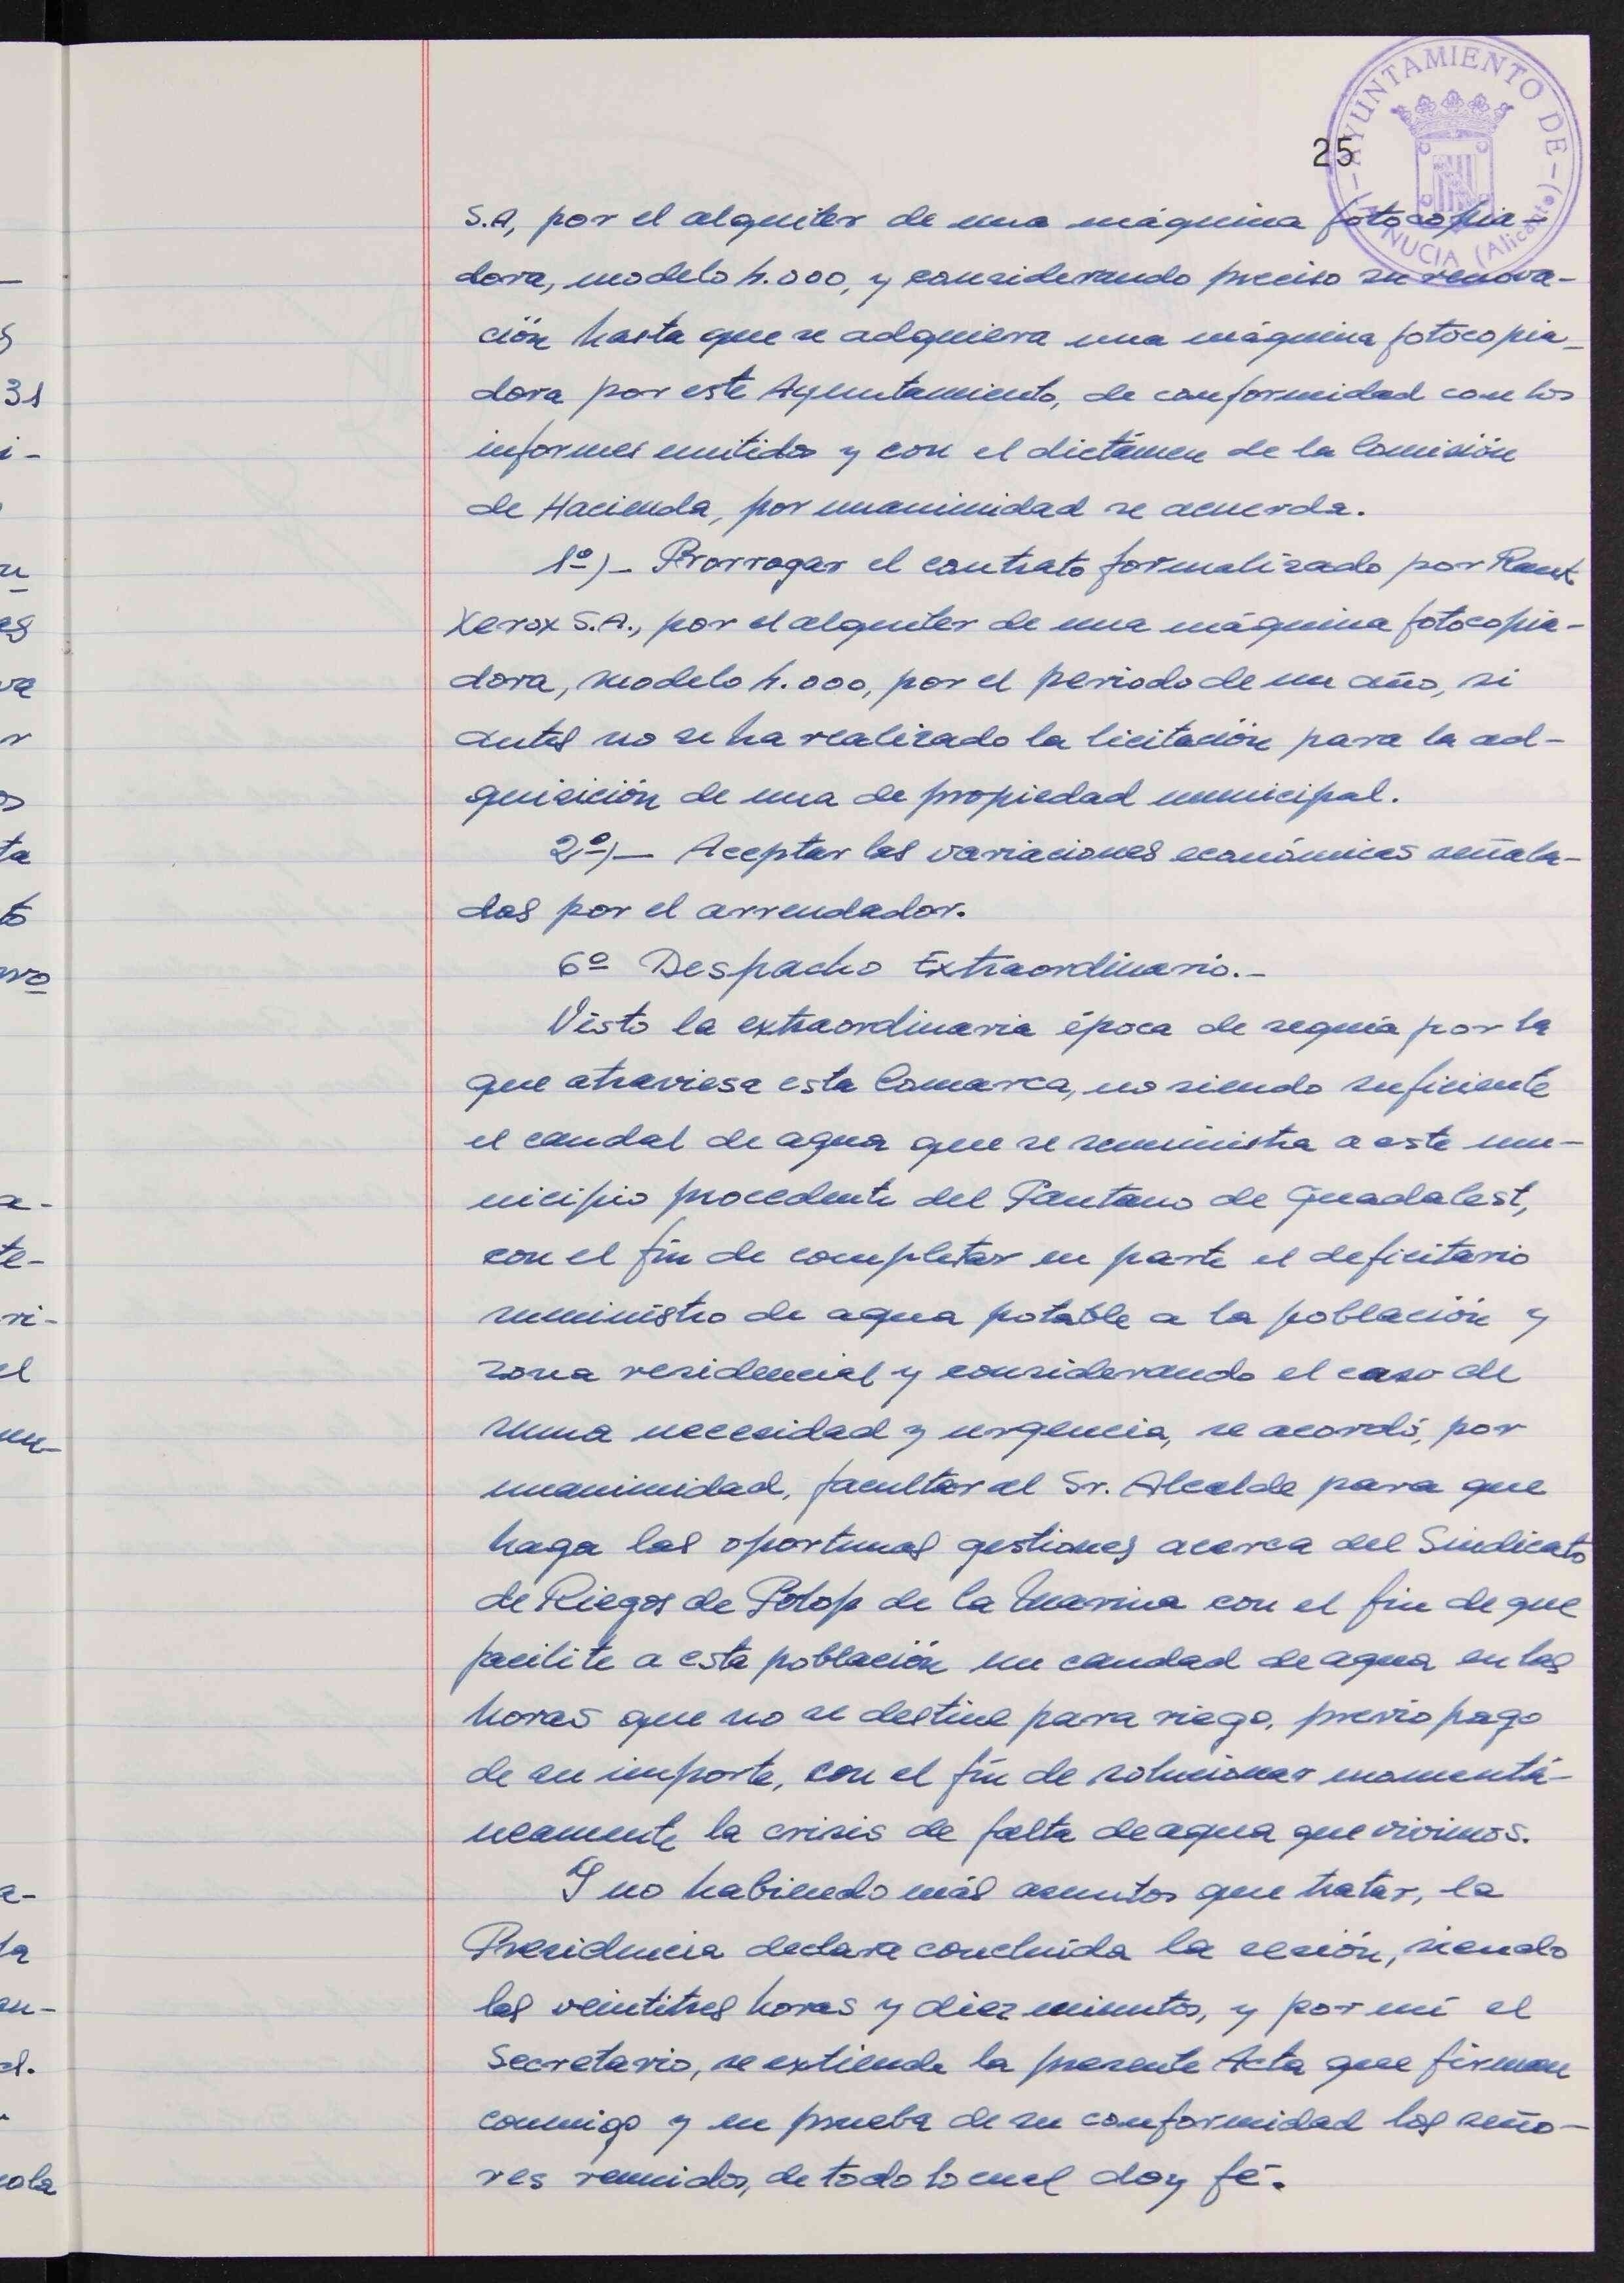 25
-AYUNTAMIENTO DE- NUCIA (Alicante)
S.A, por el alquiler de una máquina fotocopia-
dora, modelo 4.000, y considerando preciso su renova-
ción hasta que se adquiera una máquina fotocopia-
dora por este Ayuntamiento, de conformidad con los
informes emitidos y con el dictámen de la Comisión
de Hacienda, por unanimidad se acuerda.
1º)- Prorrogar el contrato formalizado por Rank
Xerox S.A., por el alquiler de una máquina fotocopia-
dora, modelo 4.000, por el periodo de un año, si
antes no se ha realizado la licitación para la ad-
quisición de una de propiedad municipal.
2º)- Aceptar las variaciones económicas señala-
das por el arrendador.
6º Despacho Extraordinario.-
Visto la extraordinaria época de sequía por la
que atraviesa esta Comarca, no siendo suficiente
el caudal de agua que se suministra a este mu-
nicipio procedente del Pantano de Guadalest,
con el fín de completar en parte el deficitario
suministro de agua potable a la población y
zona residencial y considerando el caso de
suma necesidad y urgencia, se acordó, por
unanimidad, facultar al Sr. Alcalde para que
haga las oportunas gestiones acerca del Sindicato
de Riegos de Polop de la Marina con el fin de que
facilite a esta población un caudad de agua en las
horas que no se destine para riego, previo pago
de su importe, con el fín de solucionar momentá-
neamente la crisis de falta de agua que vivimos.
Y no habiendo más asuntos que tratar, la
Presidencia declara concluída la sesión, siendo
las veintitres horas y diez minutos, y por mí el
Secretario, se extiende la presente Acta que firman
conmigo y en prueba de su conformidad los seño-
res reunidos, de todo lo cual doy fé.